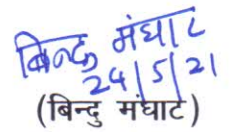 बिन्दु मंघाट
24/5/21
(बिन्दु मंघाटे)